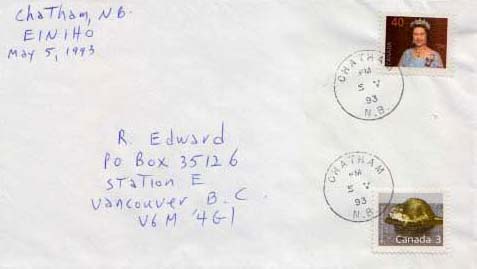 Chatham, N.B.
EINIHO
May 5, 1993
40
CANADA
CHATHAM
PM
5 V
93
N.B.
R. Edward
PO Box 35126
Station E
Vancouver B.C.
V6M 4G1
CHATHAM
PM
5 V
93
N.B.
Canada 3